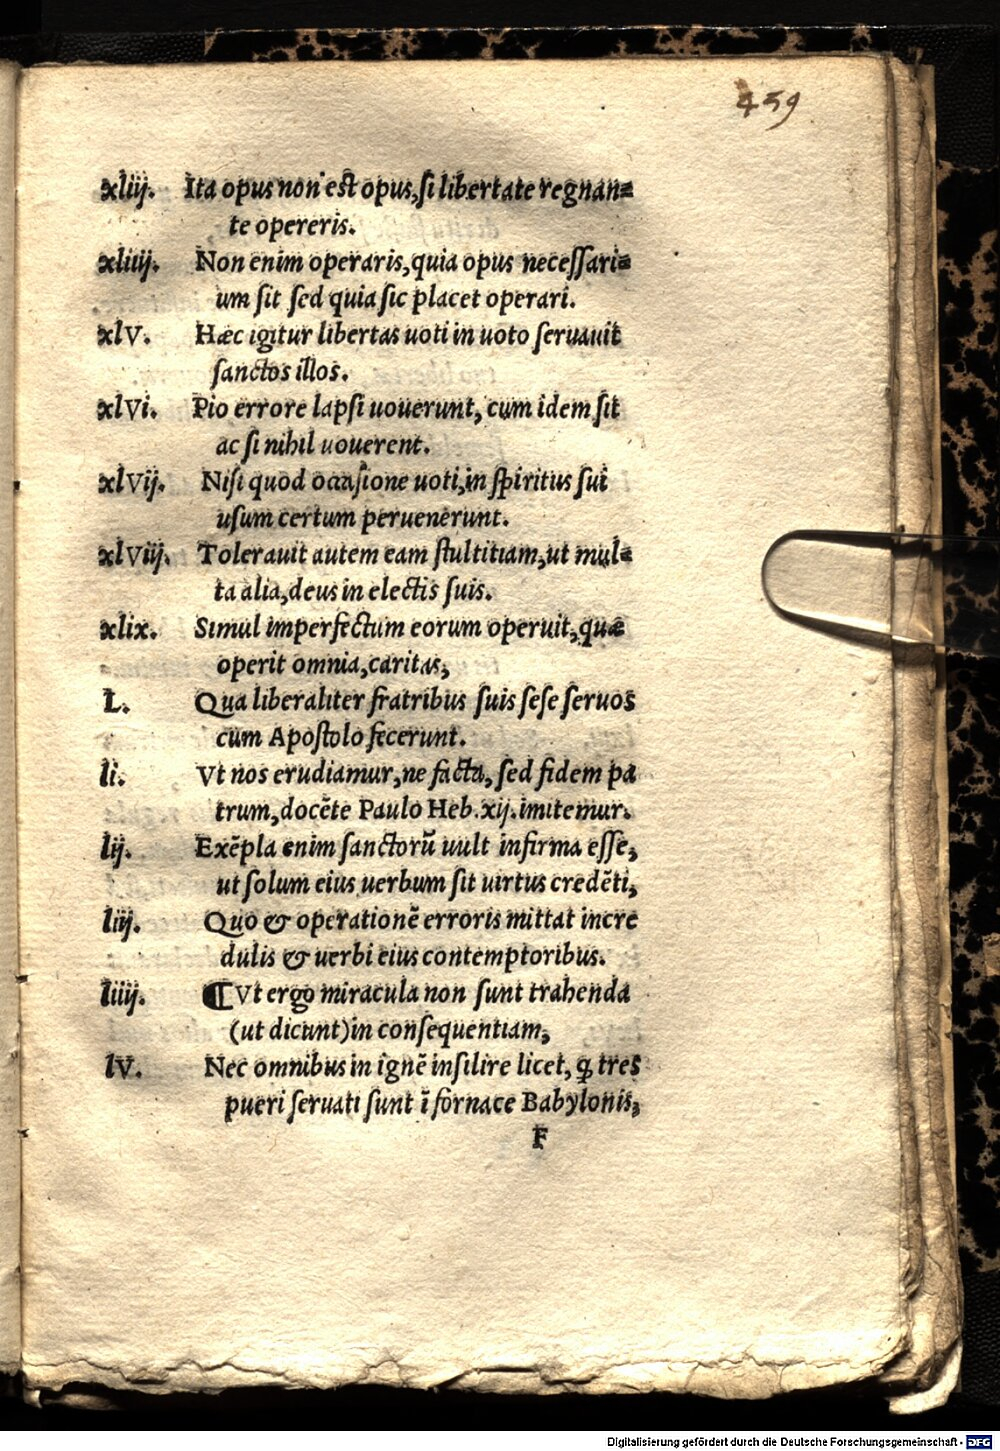 459
xliij. Ita opus non est opus, si libertate regnan=
te opereris.
xliiij. Non enim operaris, quia opus necessari=
um sit sed quia sic placet operari.
xlv. Hæc igitur libertas uoti in uoto seruauit
sanctos illos.
xlvi. Pio errore lapsi uouerunt, cum idem sit
ac si nihil uouerent.
xlvij. Nisi quod occasione uoti, in spiritus sui
usum certum peruenerunt.
xlviij. Tolerauit autem eam stultitiam, ut mul=
ta alia, deus in electis suis.
xlix. Simul imperfectum eorum operuit, quæ
operit omnia, caritas,
L. Qua liberaliter fratribus suis sese seruos
cum Apostolo fecerunt.
li. Vt nos erudiamur, ne facta, sed fidem pa
trum, docẽte Paulo Heb. xij. imitemur.
lij. Exẽpla enim sanctorũ uult infirma esse,
ut solum eius uerbum sit uirtus credẽti,
liij. Quo & operationẽ erroris mittat incre
dulis & uerbi eius contemptoribus.
liiij. ¶ Vt ergo miracula non sunt trahenda
(ut dicunt) in consequentiam,
lv. Nec omnibus in ignẽ insilire licet, ꝗ tres
pueri seruati sunt ĩ fornace Babylonis,
F
Digitalisierung gefördert durch die Deutsche Forschungsgemeinschaft - DFG